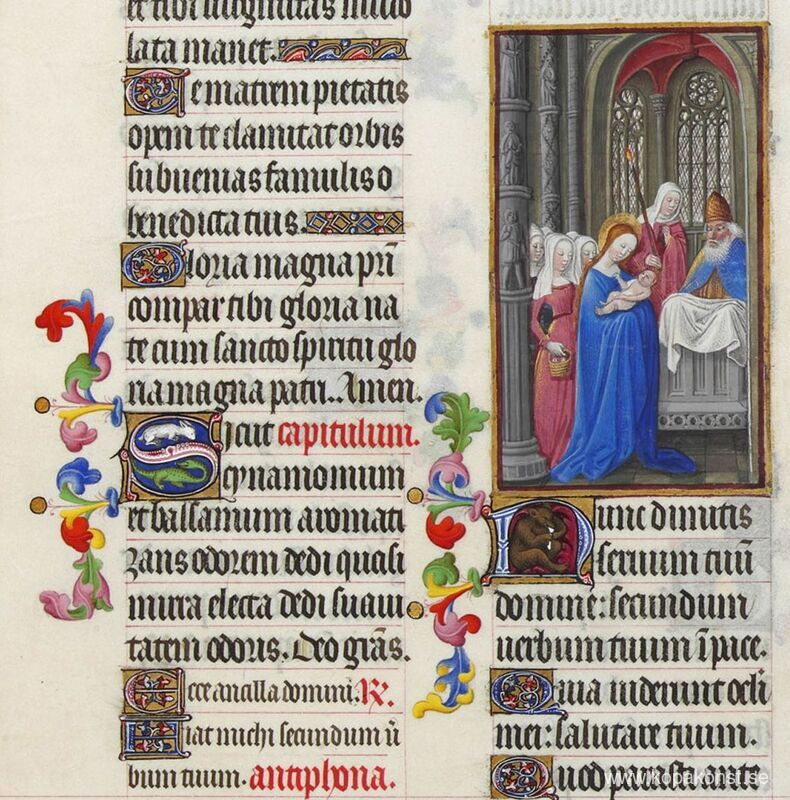 et tibi uirginitas inuio
lata manet.
Te matrem pietatis
opem te clamitat orbis
subuenias famulis o
benedicta tuis.
Gloria magna pr̄i
compar tibi gloria na
te cum sancto spiritu glo
ria magna patri. Amen.
Sicut capitulum.
cynamomum
et balsamum aromati
zans odorem dedi quasi
mirra electa dedi suaui
tatem odoris. Deo gr̄as.
Ecce ancilla domini. R.
Fiat michi secundum ū
bum tuum. antiphona.
Nunc dimitis
seruum tuū
domine: secundum
uerbum tuum ī pace.
Quia uiderunt ocli
mei: salutare tuum.
Quod parasti ante
www.kopakonst.se